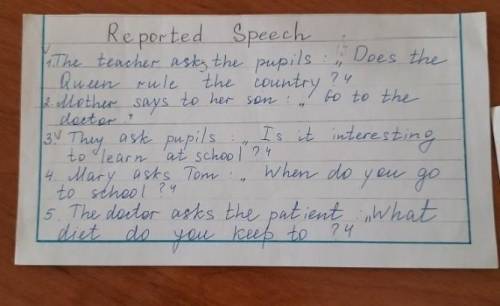 Reported Speech
1. The teacher asks the pupils: „Does the
Queen rule the country?"
2. Mother says to her son: „Go to the
doctor"
3. They ask pupils: „Is it interesting
to learn at school?"
4. Mary asks Tom: „When do you go
to school?"
5. The doctor asks the patient: „What
diet do you keep to?"